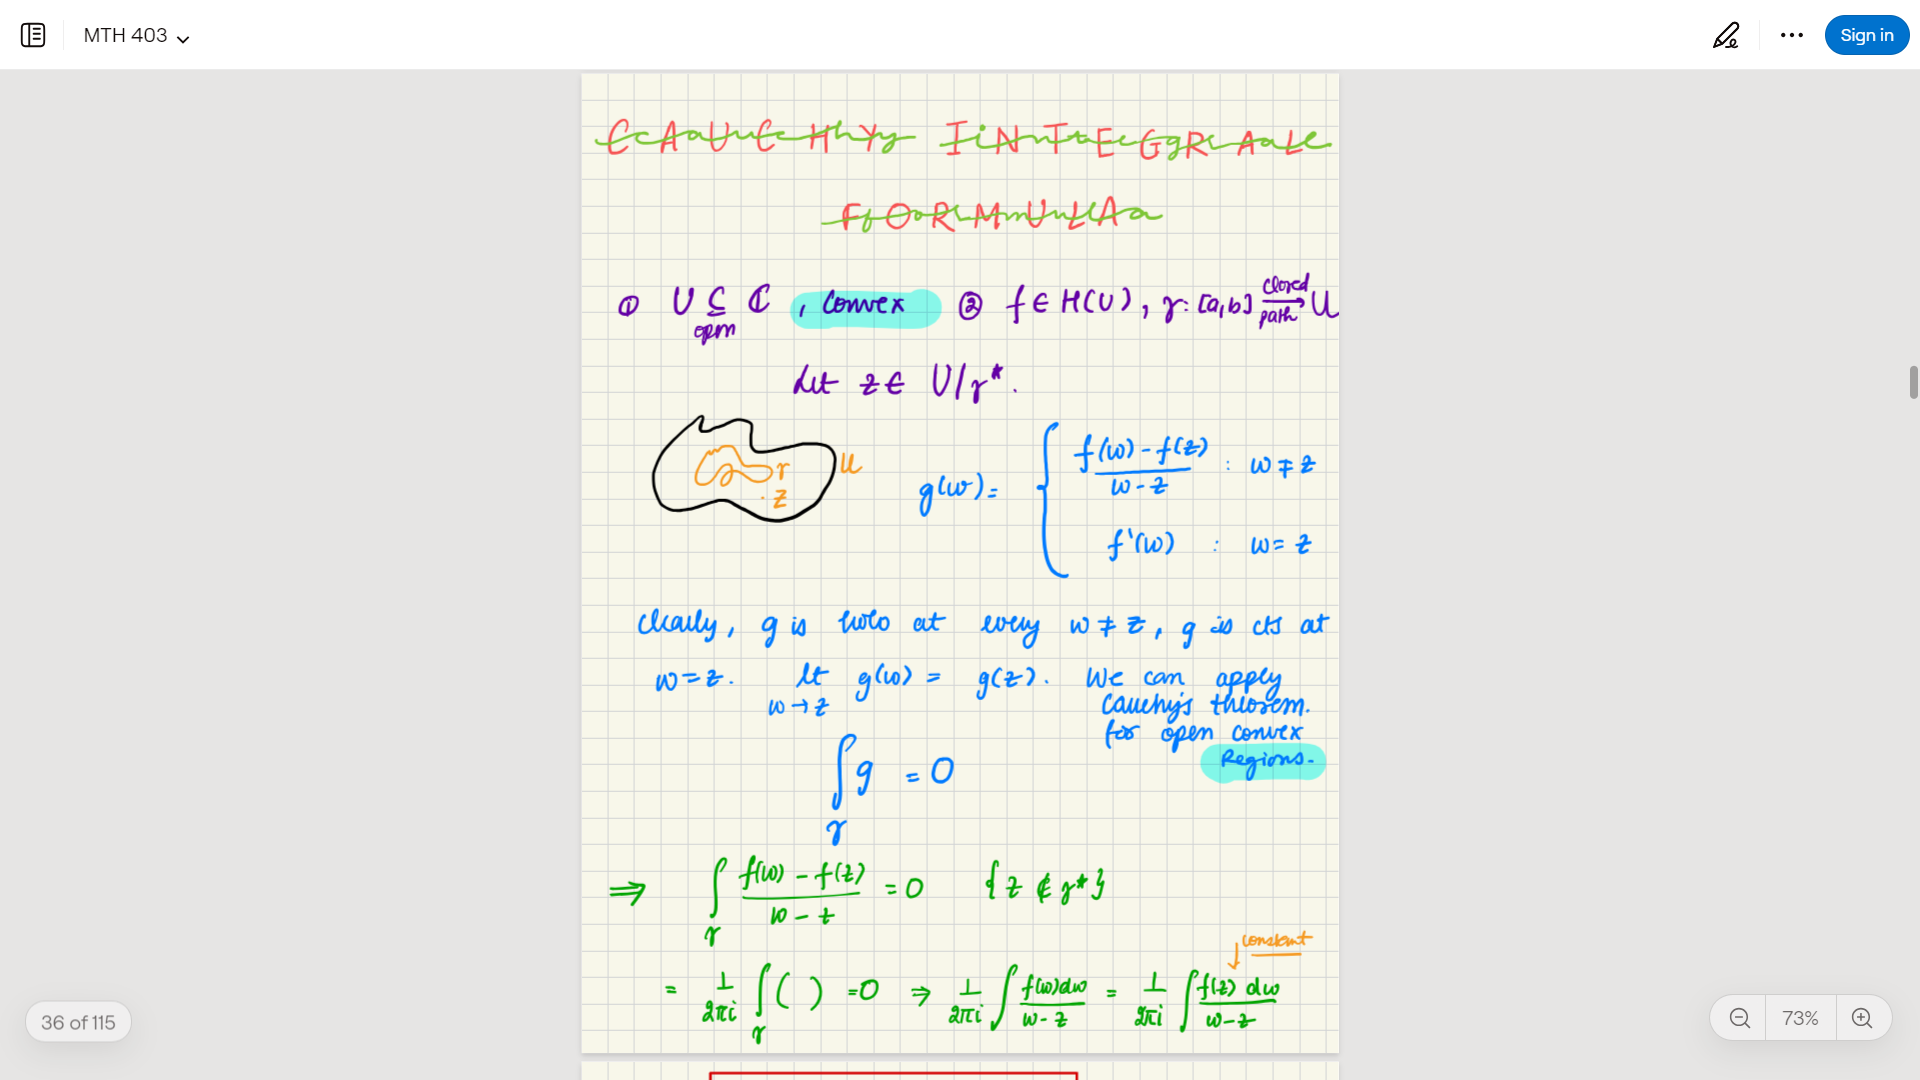 MTH 403
Sign in
CAUCHY INTEGRAL
FORMULA
① U ⊆ ℂ , Convex ② f ∈ H(U), γ: [a,b] closed path → U
open
Let z ∈ U/γ*.
γ U
. z
g(w) = { f(w) - f(z) / w - z : w ≠ z
f'(w) : w = z
Clearly, g is holo at every w ≠ z, g is cts at
w = z. lt w → z g(w) = g(z). We can apply
Cauchy's theorem.
for open convex
Regions.
∫γ g = 0
⇒ ∫γ f(w) - f(z) / w - z = 0 { z ∉ γ* }
constant
= 1/2πi ∫γ ( ) = 0 ⇒ 1/2πi ∫ f(w)dw / w - z = 1/2πi ∫ f(z) dw / w - z
36 of 115
73%